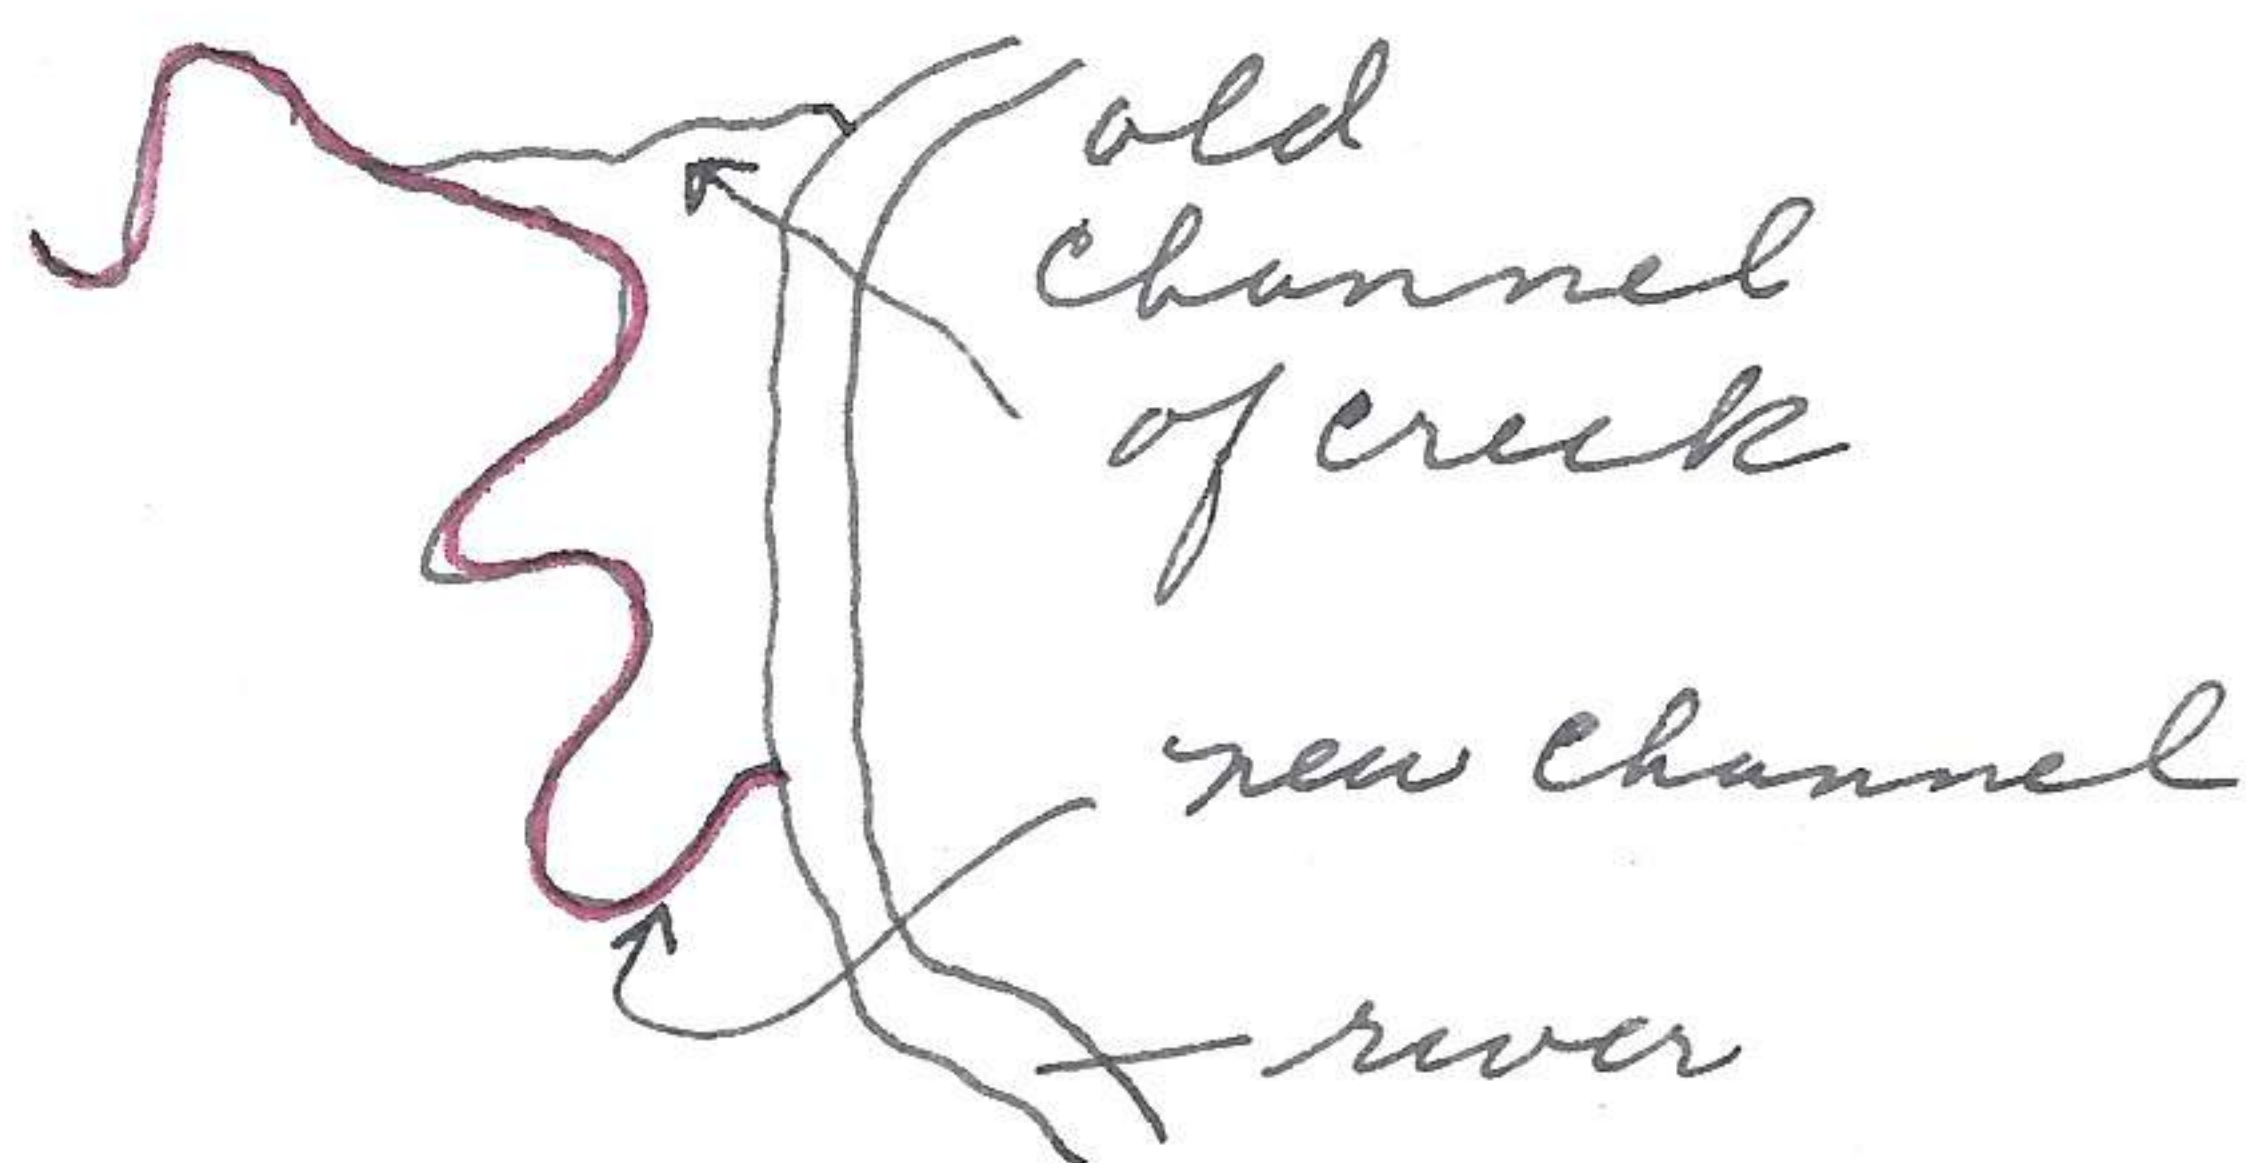 old
channel
of creek
new channel
river